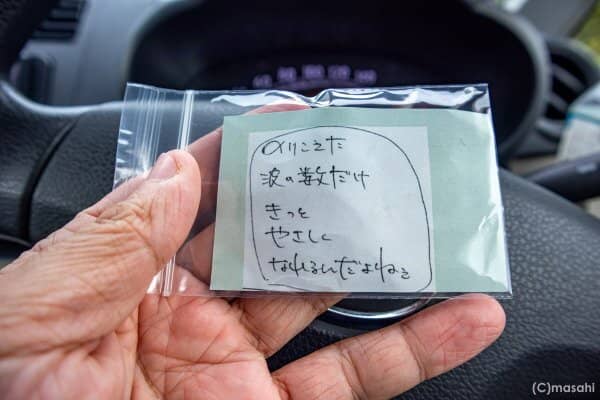 のりこえた
波の数だけ
きっと
やさしく
なれるんだよねぇ
(C)masahi